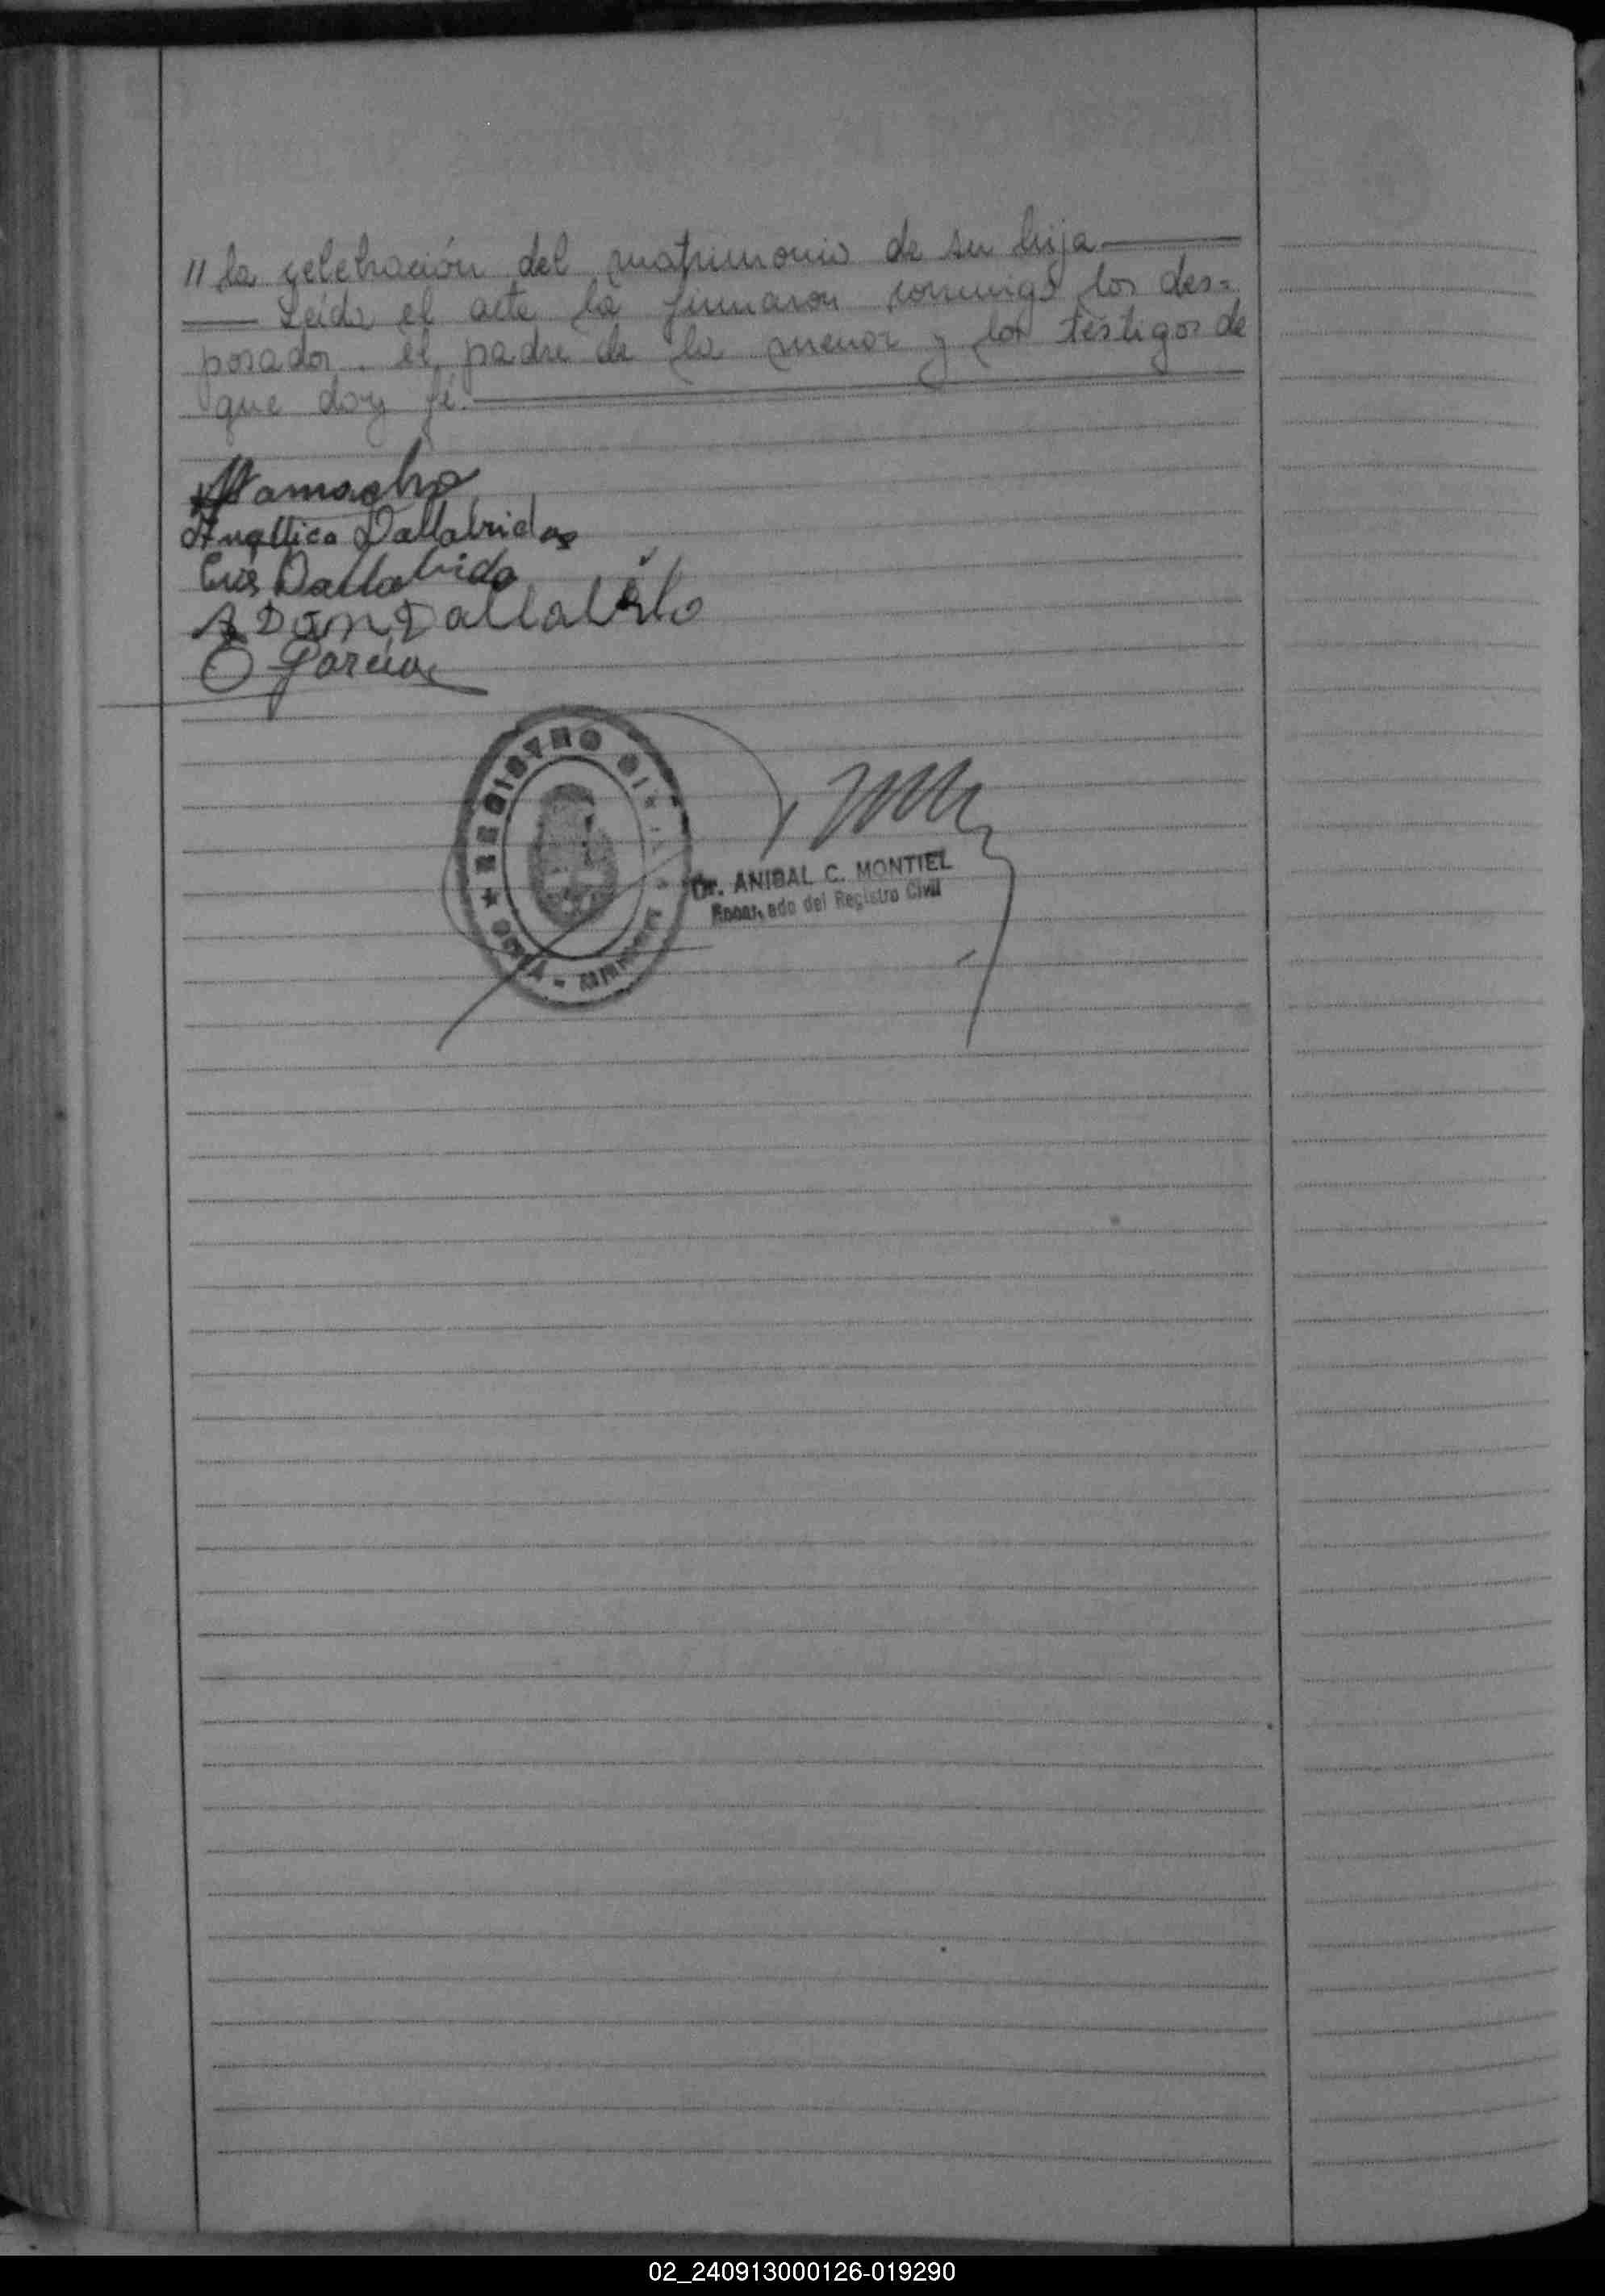 // la celebración del matrimonio de su hija
Leída el acta la firmaron conmigo los des=
posados, el padre de la menor y los testigos de
que doy fé.
Camacho
Angelica Dallabrida
Luis Dallabrida
ADan Dallabrida
O Garcia
REGISTRO CI
Dr. ANIBAL C. MONTIEL
Encargado del Registro Civil
02_240913000126-019290